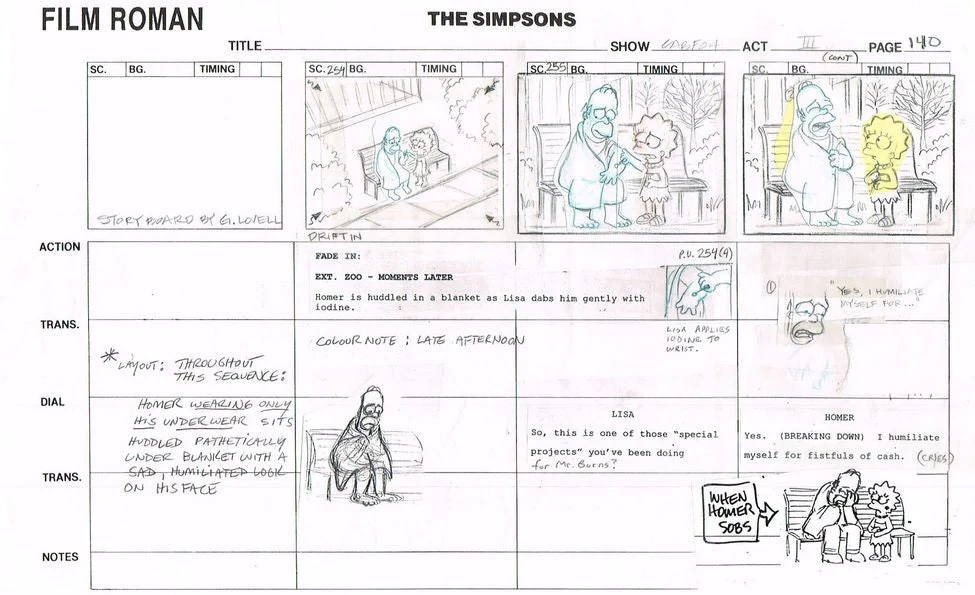 FILM ROMAN
THE SIMPSONS
TITLE
SHOW
ACT III
PAGE 140
(CONT)
SC. BG. TIMING
SC. 254 BG. TIMING
SC. 255 BG. TIMING
SC. BG. TIMING
STORYBOARD BY G. LOVELL
DRIFT IN
ACTION
FADE IN:
EXT. ZOO - MOMENTS LATER
Homer is huddled in a blanket as Lisa dabs him gently with
iodine.
P.U. 254(4)
LISA APPLIES
IODINE TO
WRIST.
①
"YES, I HUMILIATE
MYSELF FOR..."
②
TRANS.
COLOUR NOTE: LATE AFTERNOON
* LAYOUT: THROUGHOUT
THIS SEQUENCE:
DIAL
HOMER WEARING ONLY
HIS UNDERWEAR SITS
HUDDLED PATHETICALLY
UNDER BLANKET WITH A
SAD, HUMILIATED LOOK
ON HIS FACE
LISA
So, this is one of those "special
projects" you've been doing
for Mr. Burns?
HOMER
Yes. (BREAKING DOWN) I humiliate
myself for fistfuls of cash. (CRIES)
TRANS.
WHEN
HOMER
SOBS
NOTES